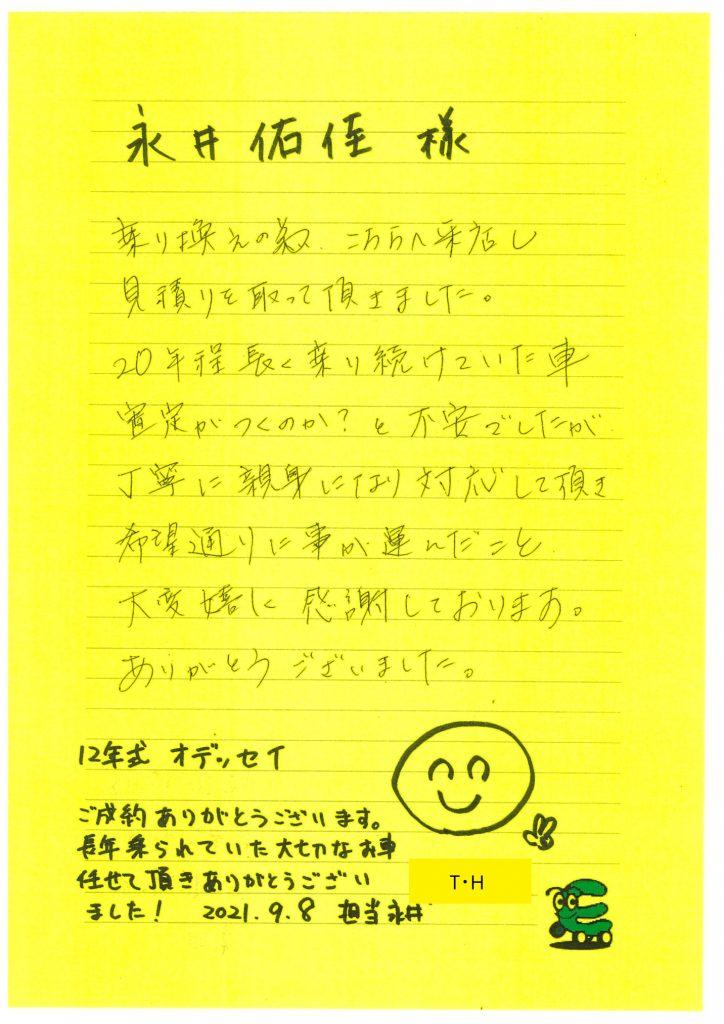 永井佑侄 様
乗り換えの為、こちらへ来店し
見積りを取って頂きました。
20年程長く乗り続けていた車
査定がつくのか?と不安でしたが
丁寧に親身になり対応して頂き
希望通りに事が運んだこと
大変嬉しく感謝しております。
ありがとうございました。
12年式 オデッセイ
ご成約ありがとうございます。
長年乗られていた大切なお車
任せて頂きありがとうござい
ました! 2021.9.8 担当永井
T・H